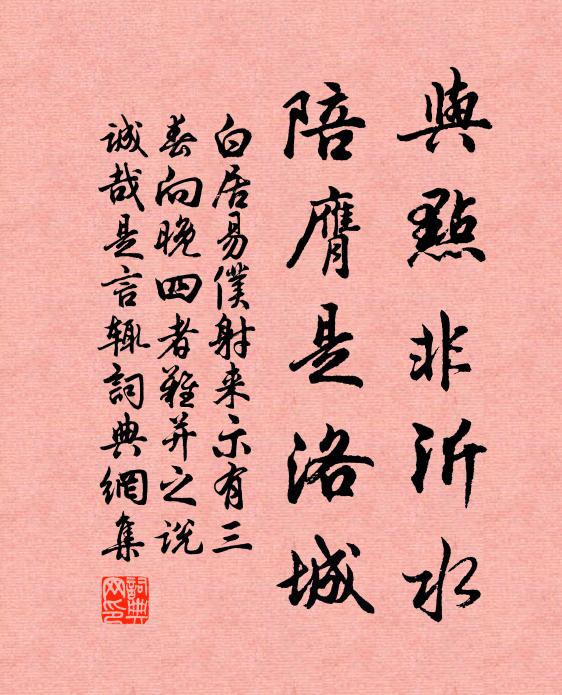 與點非沂水
陪膺是洛城
白居易僕射来示有三
春向晚四者難并之說
誠哉是言輒詞典網集
詞典网印